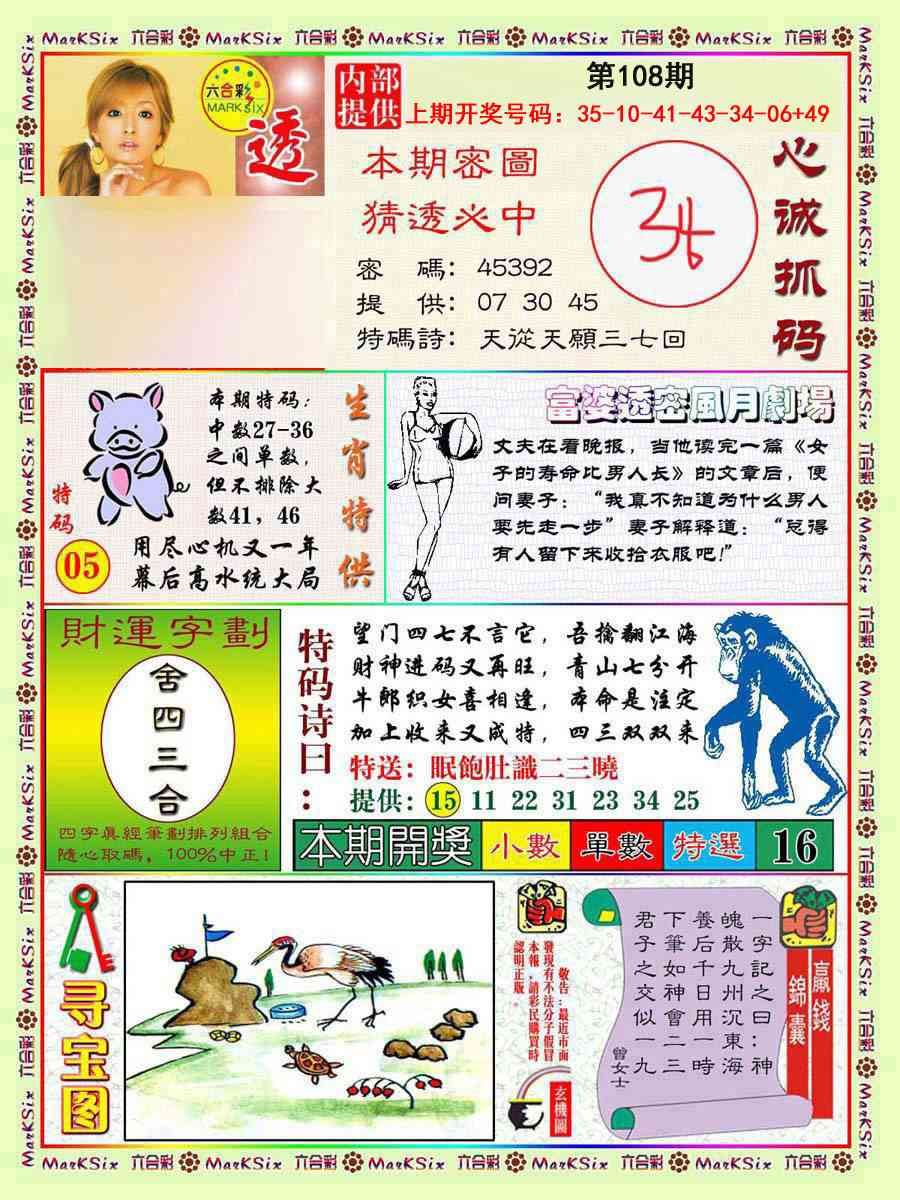 MarKSix 六合彩 MarKSix 六合彩 MarKSix 六合彩 MarKSix 六合彩 MarKSix 六合彩
六合彩
MARK SIX
透
内部
提供
第108期
上期开奖号码：35-10-41-43-34-06+49
本期密圖
猜透必中
密　碼：45392
提　供：07 30 45
特碼詩：天從天願三七回
心诚抓码
特码
05
本期特码：
中数27-36
之间单数，
但不排除大
数41，46
用尽心机又一年
幕后高水统大局
生肖特供
富婆透密風月劇場
丈夫在看晚报，当他读完一篇《女
子的寿命比男人长》的文章后，便
问妻子：“我真不知道为什么男人
要先走一步”妻子解释道：“总得
有人留下来收拾衣服吧！”
財運字劃
舍四三合
四字眞經筆劃排列組合
隨心取碼，100%中正！
特码诗曰：
望门四七不言它，吾擒翻江海
财神进码又再旺，青山七分开
牛郎织女喜相逢，本命是注定
加上收来又成特，四三双双来
特送：眠飽肚識二三曉
提供：15 11 22 31 23 34 25
本期開獎 小數 單數 特選 16
寻宝图
敬告：最近市面
發現有不法分子假冒
本報，請彩民購買時
認明正版。
玄機圖
一字記之曰：神
魄散九州沉東海
養后千日用一時
下筆如神會二三
君子之交似一九
曾女士
贏錢
錦囊
MarKSix 六合彩 MarKSix 六合彩 MarKSix 六合彩 MarKSix 六合彩 MarKSix 六合彩